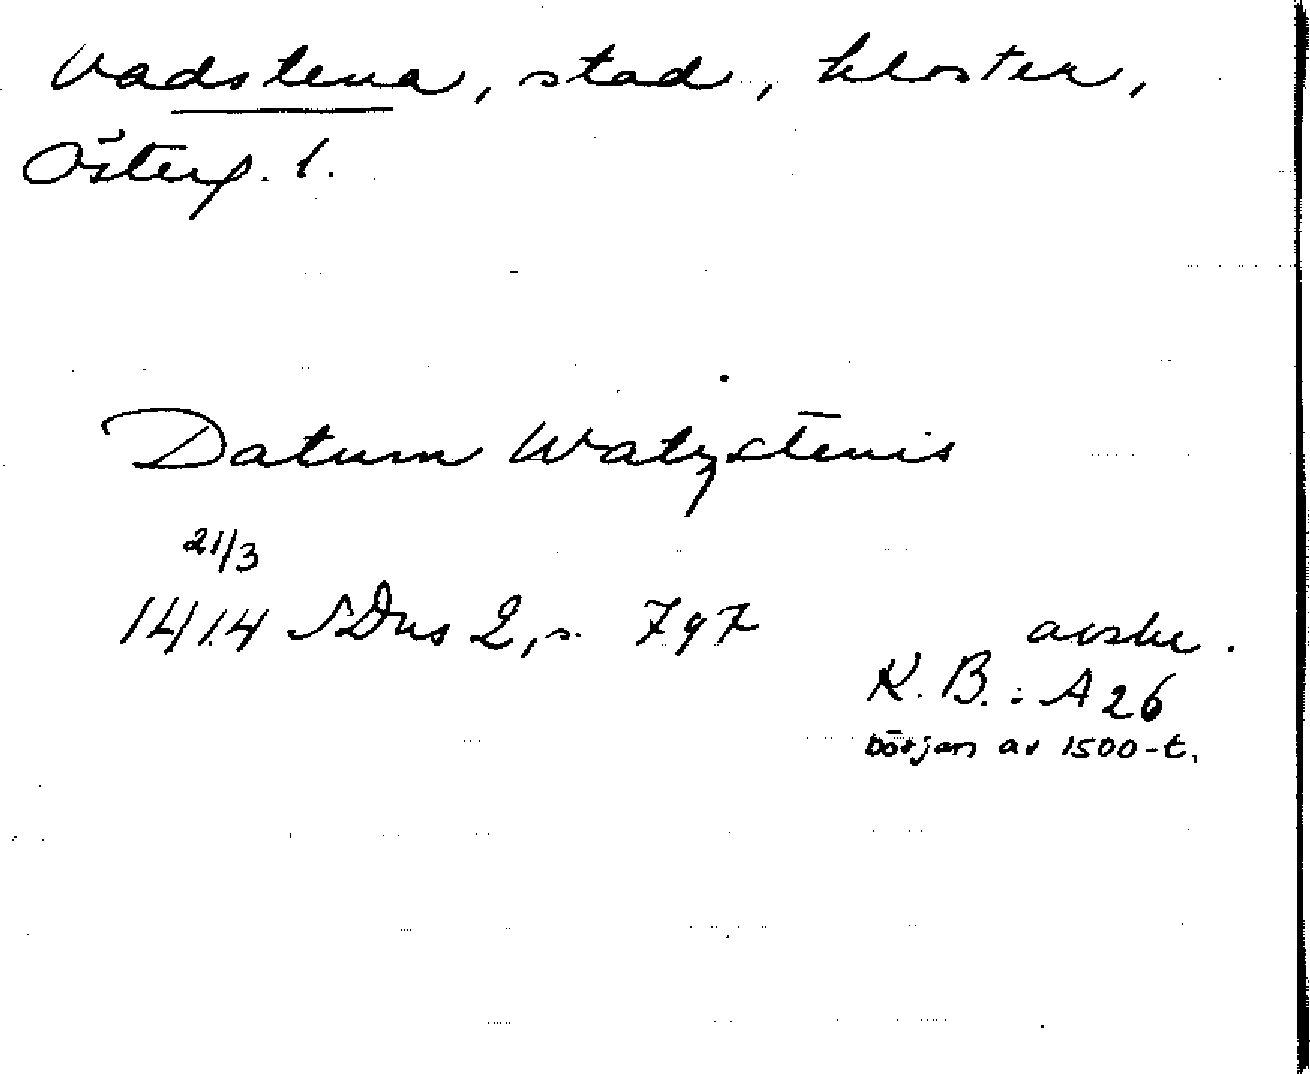 Vadstena, stad, kloster,
Österg. l.
Datum Watzstenis
21/3
1414 SDns 2, s. 797 avskr.
K. B. : A 26
början av 1500-t.